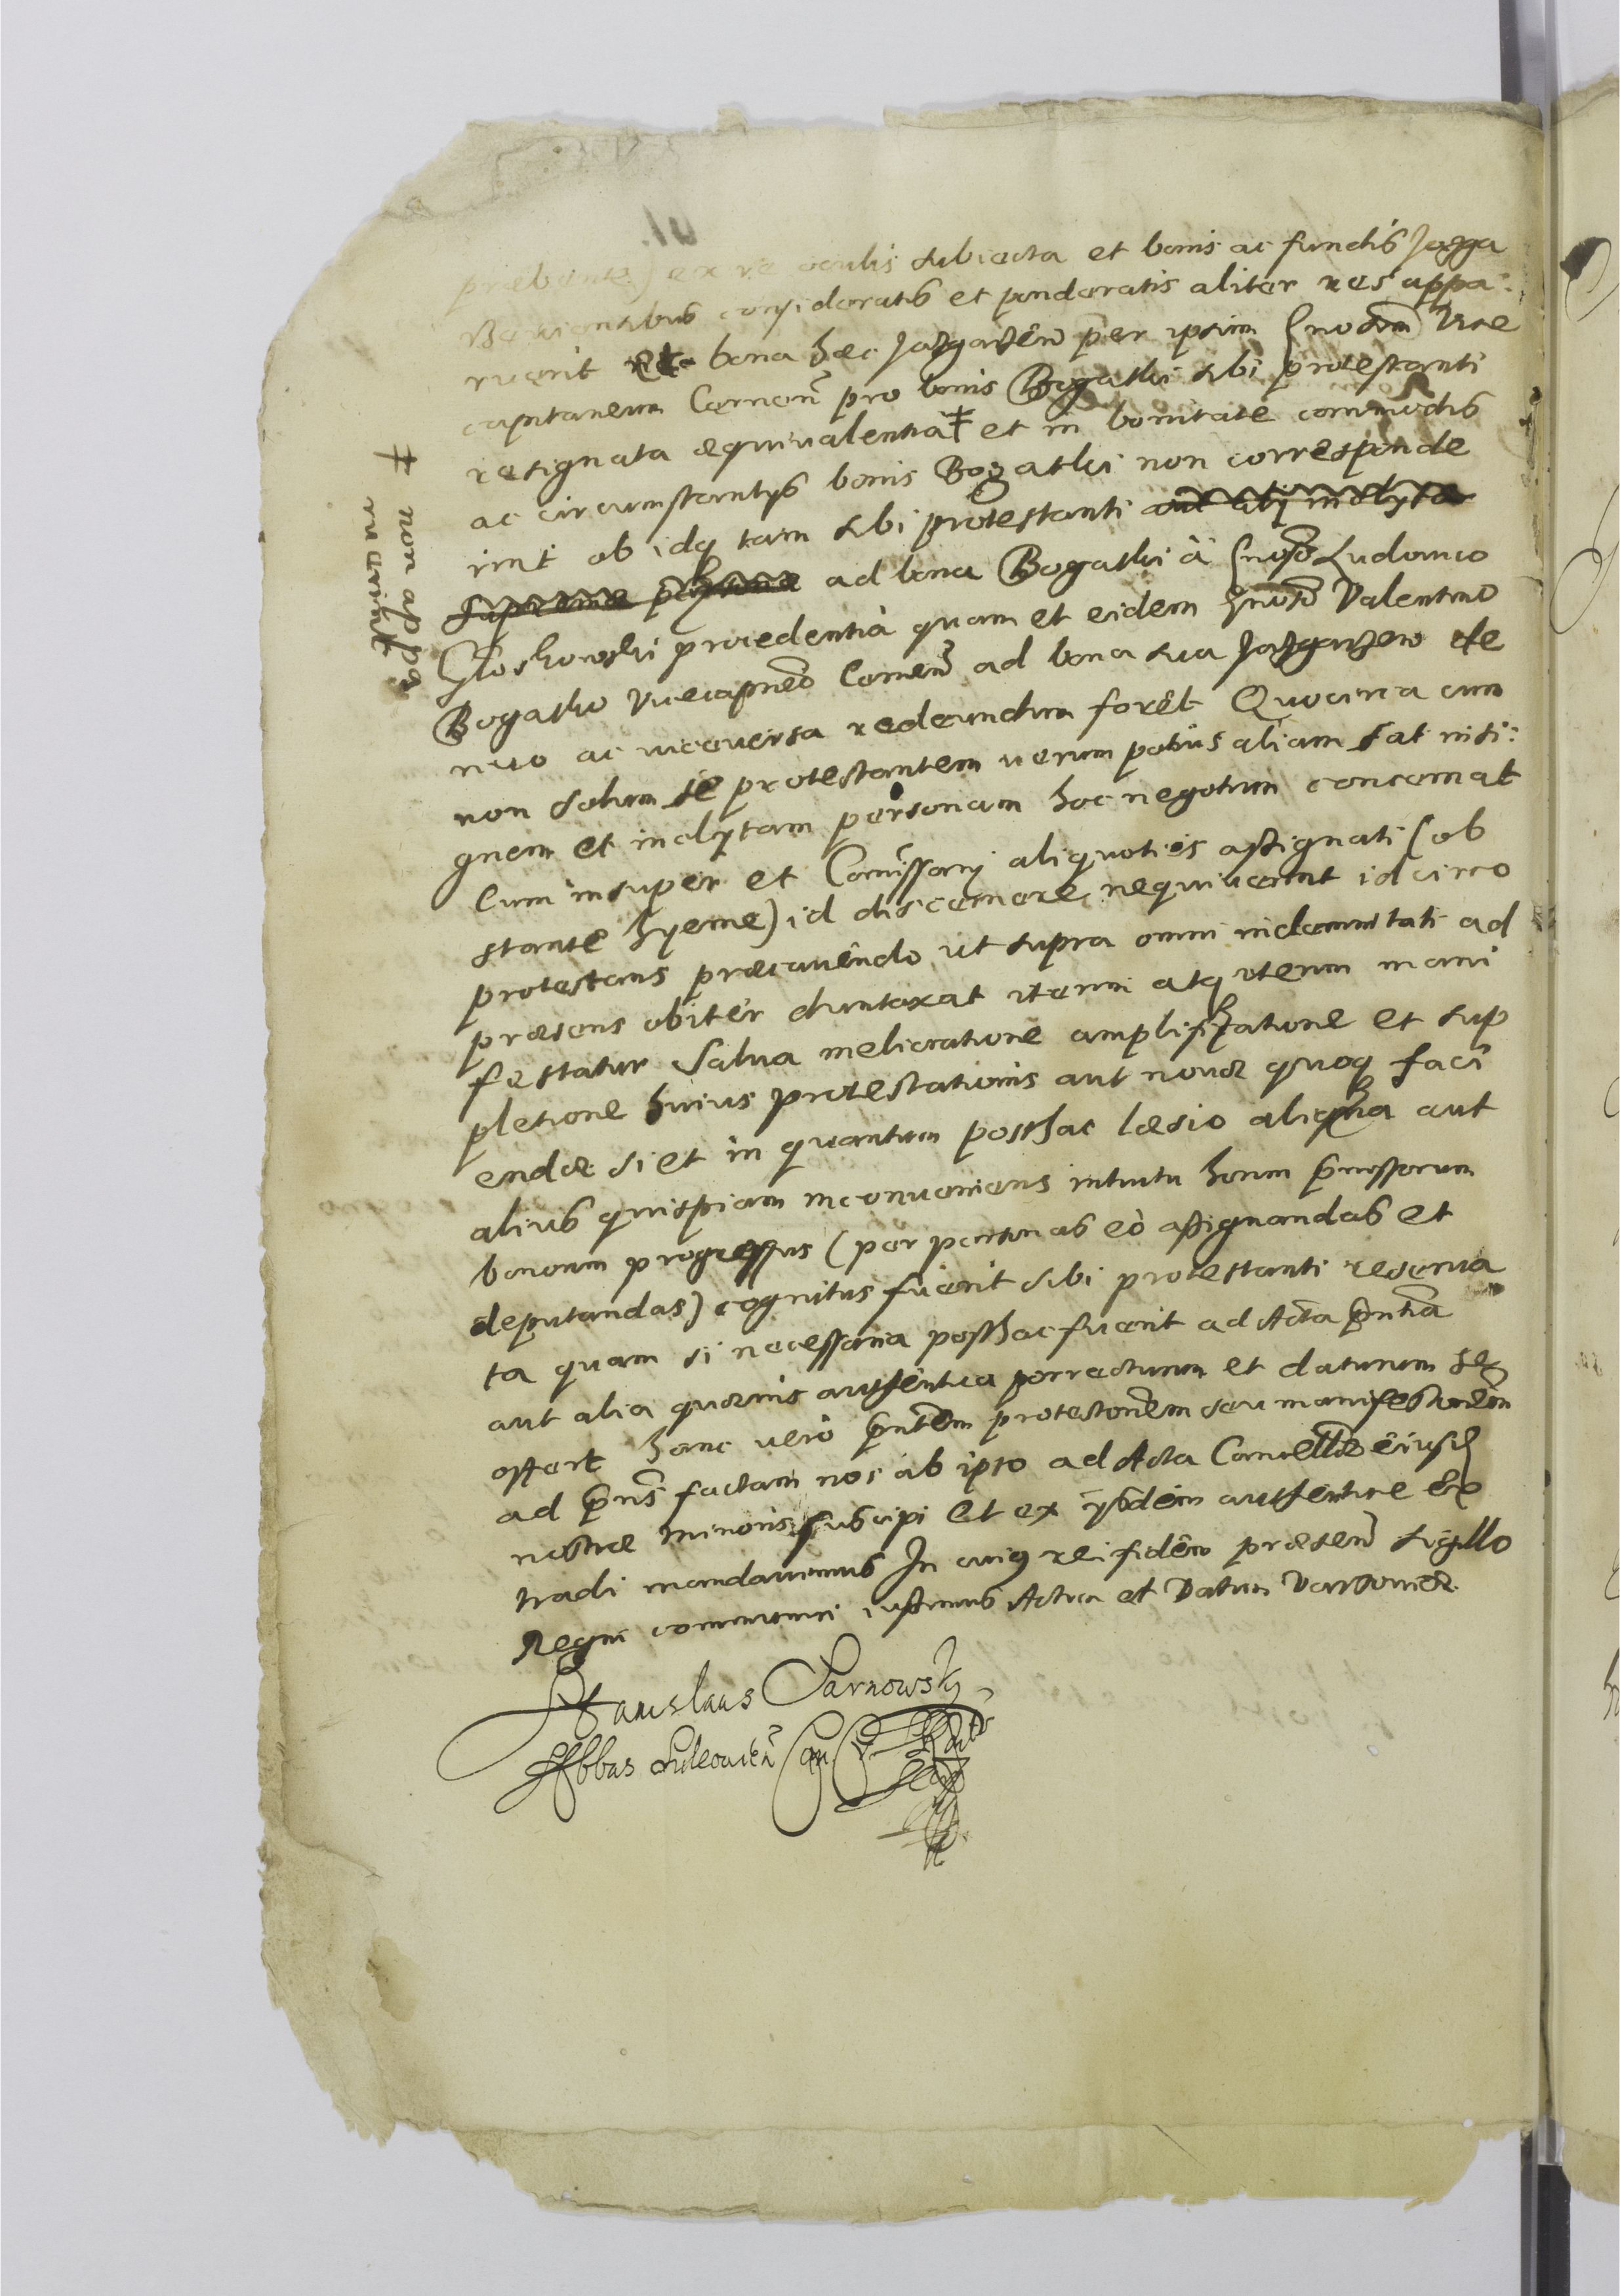 præbente) ex re oculis subiecta et bonis ac fundis Jazga
rzewiensibus consideratis et ponderatis aliter res appa:
ruerit bona hæc Jazgarzew per ipsum Gnosum Vice
capitaneum Camenen pro bonis Bogatki sibi protestanti
resignata æquiualentia ‡ et in bonitate commodis
ac circumstantys bonis Bogatki non corresponde
rint ob idq tam sibi protestanti aut alij inclytæ
supremæ personæ ad bona Bogatki â Gnoso Ludouico
Gloskowski procedentia quam et eidem Gnoso Valentino
Bogatko Vicecapneo Camen ad bona sua Jazgarzew de
nuo ac viceuersa redeundum forêt Quocirca cum
non solum se protestantem uerum potius aliam sat insi:
gnem et inclytam personam hoc negotium concernat
Cum insuper et Comissarij aliquoties assignati (ob
stante hyeme) id discernere nequiuerint idcirco
protestans præcauêndo ut supra omni indemnitati ad
præsens obiter duntaxat iterum atq iterum mani
festatur Salua melioratione amplifizatione et sup
pletione huius protestationis aut nouæ quoq faci
endæ si et in quantum posthac læsio aliqua aut
alius quispiam inconueniens intuitu horum pmissorum
bonorum progressus (per personas eò assignandas et
deputandas) cognitus fuerit sibi protestanti reserua
ta quam si necessaria posthac fuerit ad Acta pntia
aut alia quæuis authentica porrecturum et daturum se
offert hanc uerò pntem protestonem seu manifestonem
ad pns factam nos ab ipso ad Acta Cancellæ eiusd
nostræ minoris suscipi et ex ysdem authentice Ex
tradi mandauimus In cuius rei fidem præsen sigillo
Regni communiri iussimus Actum et Datum Varsouiæ.
‡ non appa
ruerint
Stanislaus Sarnowsky
Abbas Suleouien